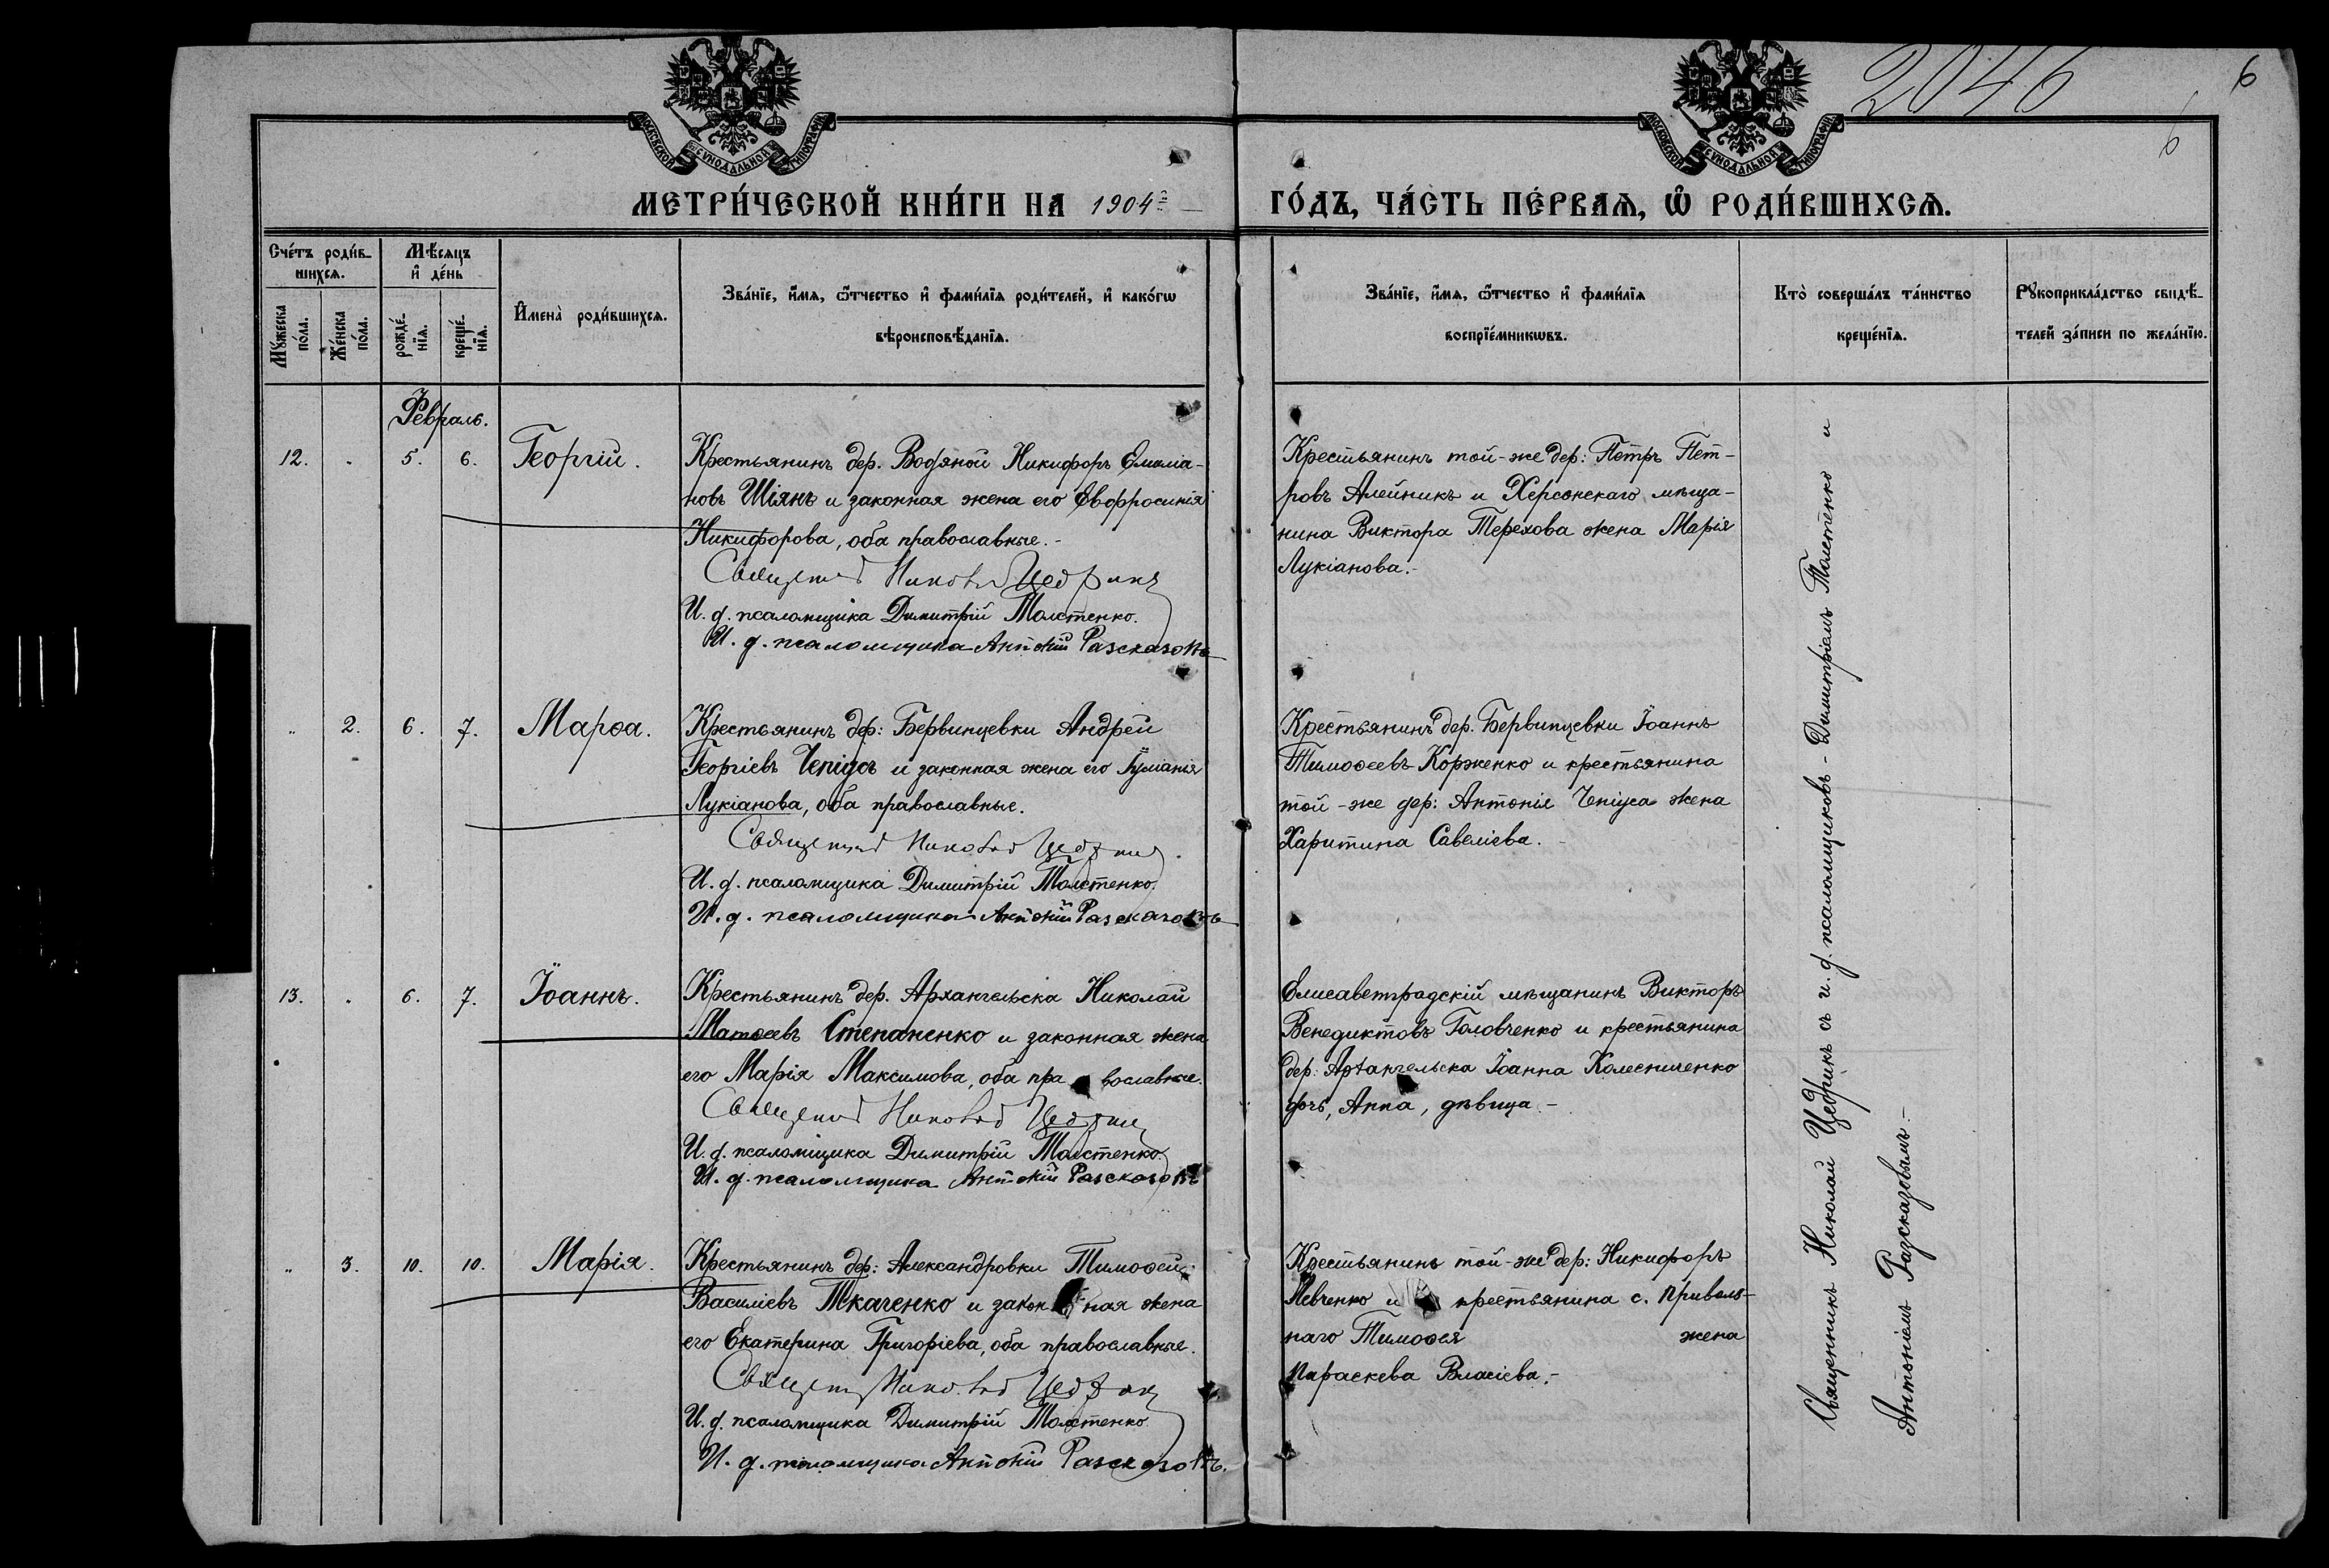 2046
6
6
МОСКОВСКОЙ СѴНОДАЛЬНОЙ ТИПОГРАФІИ
МОСКОВСКОЙ СѴНОДАЛЬНОЙ ТИПОГРАФІИ
МЕТРИ́ЧЕСКОЙ КНИ́ГИ НА 1904 г.
ГО́ДЪ, ЧА́СТЬ ПЕ́РВАѦ, Ѡ҆ РОДИ́ВШИХСѦ.
Сче́тъ роди́в-
шихсѧ.
Мѣ́сѧцъ
и҆ де́нь
Мꙋ́жеска
по́ла.
Же́нска
по́ла.
рожде́-
нїѧ.
креще́-
нїѧ.
И҆мена̀ роди́вшихсѧ.
Зва́нїе, и҆́мѧ, ѻ҆́тчество и҆ фами́лїѧ роди́телей, и҆ како́гѡ
вѣроисповѣ́данїѧ.
Зва́нїе, и҆́мѧ, ѻ҆́тчество и҆ фами́лїѧ
воспрїе́мникѡвъ.
Кто̀ соверша́лъ та́инство
креще́нїѧ.
Рꙋкоприкла́дство свидѣ́-
телей за́писи по жела́нїю.
Февраль.
12. " 5. 6. Георгій.
Крестьянинъ дер. Водяной Никифоръ Емиліа-
новъ Шіянъ и законная жена его Евфросинія
Никифорова, оба православные.-
Священникъ Николай Цедрикъ
И. д. псаломщика Димитрій Толстенко.
И. д. псаломщика Антоній Разсказовъ
Крестьянинъ той-же дер: Петръ Пет-
ровъ Алейникъ и Херсонскаго мѣща-
нина Виктора Терехова жена Марія
Лукіанова.-
" 2. 6. 7. Марѳа.
Крестьянинъ дер: Бервинцевки Андрей
Георгіевъ Чепіга и законная жена его Іуліанія
Лукіанова, оба православные.
Священникъ Николай Цедрикъ.
И. д. псаломщика Димитрій Толстенко.
И. д. псаломщика Антоній Разсказовъ
Крестьянинъ дер. Бервинцевки Іоаннъ
Тимоѳеевъ Корженко и крестьянина
той-же дер: Антонія Чепіга жена
Харитина Савеліева.
13. " 6. 7. Іоаннъ.
Крестьянинъ дер. Архангельска Николай
Матѳеевъ Степаненко и законная жена
его Марія Максимова, оба православные.
Священникъ Николай Цедрикъ
И. д. псаломщика Димитрій Толстенко.
И. д. псаломщика Антоній Разсказовъ
Елисаветградскій мѣщанинъ Викторъ
Венедиктовъ Головченко и крестьянина
дер. Архангельска Іоанна Колесниченко
дочь, Анна, дѣвица.-
" 3. 10. 10. Марія.
Крестьянинъ дер: Александровки Тимоѳей
Василіевъ Ткаченко и законная жена
его Екатерина Григоріева, оба православные.
Священникъ Николай Цедрикъ
И. д. псаломщика Димитрій Толстенко.
И. д. псаломщика Антоній Разсказовъ.
Крестьянинъ той-же дер: Никифоръ
Левченко и крестьянина с. Приволь-
наго Тимоѳея жена
Параскева Власіева.-
Священникъ Николай Цедрикъ съ и. д. псаломщиковъ - Димитріемъ Толстенко и
Антоніемъ Разсказовымъ.-